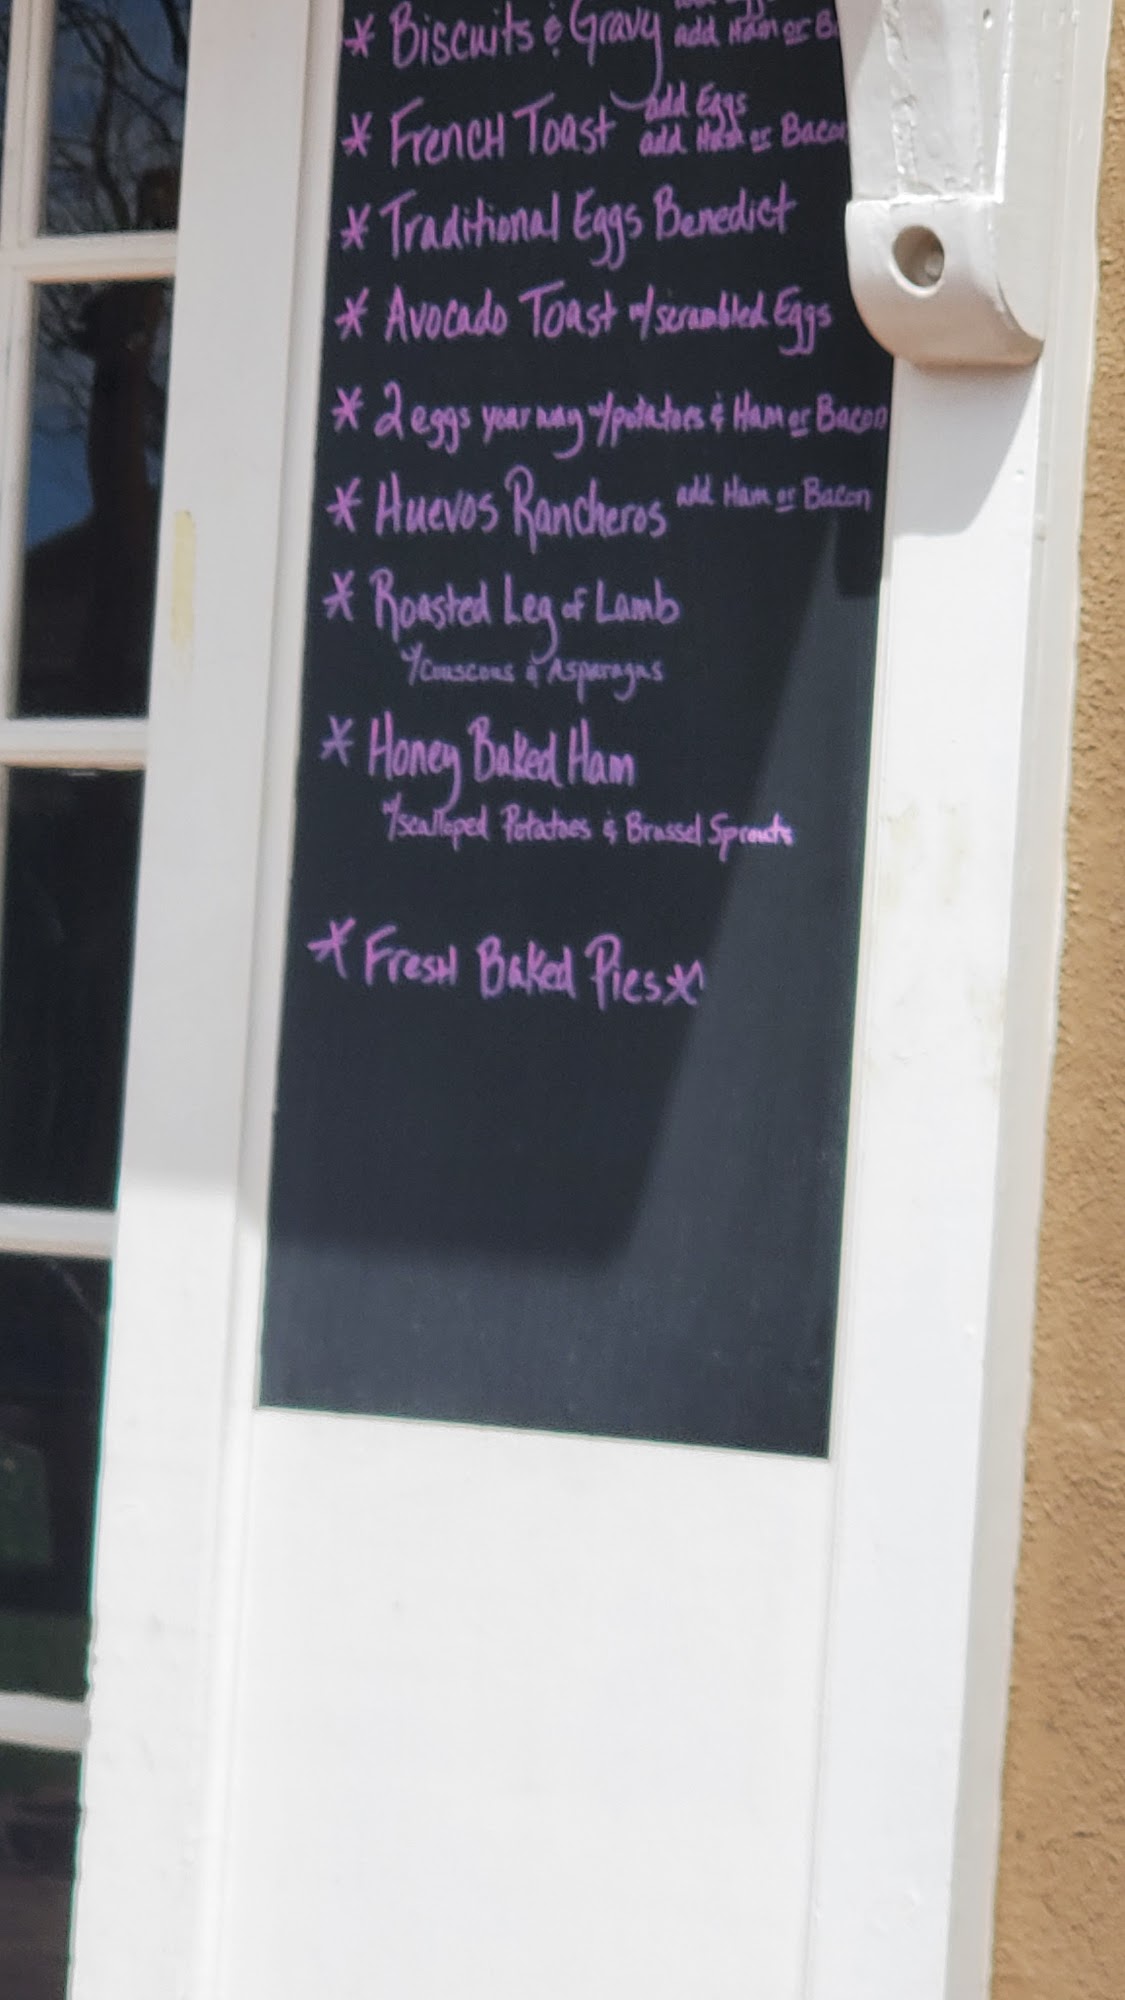 * Biscuits & Gravy add Ham or
* French Toast add Eggs
add Ham or Bacon
* Traditional Eggs Benedict
* Avocado Toast w/scrambled Eggs
* 2 eggs your way w/potatoes & Ham or Bacon
* Huevos Rancheros add Ham or Bacon
* Roasted Leg of Lamb
w/Couscous & Asparagas
* Honey Baked Ham
w/scalloped Potatoes & Brussel Sprouts
* Fresh Baked Pies *